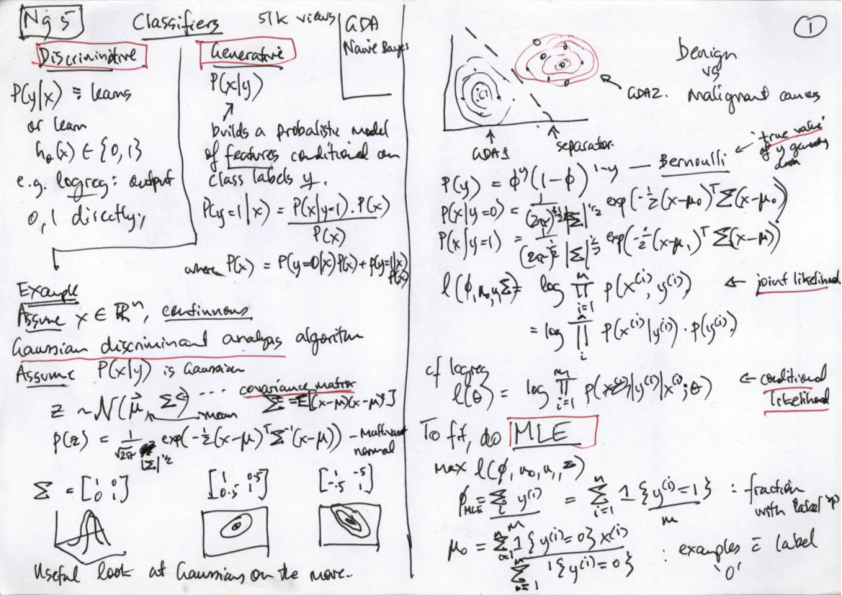 Ng 5
Classifiers
51k views
GDA
Naive Bayes
Discriminitive
P(y|x) ≡ learns
or learn
h₀(x) ∈ {0,1}
e.g. logreg: output
0, 1 directly;
Generative
P(x|y)
builds a probalistic model
of features conditional on
class labels y.
P(y=1|x) = P(x|y=1) . P(x) / P(x)
where P(x) = P(y=0|x)P(x) + P(y=1|x)P(x)
Example
Assume x ∈ ℝⁿ, continuous
Gaussian discriminant analysis algorithm
Assume P(x|y) is Gaussian
covariance matrix
z ~ N(μ⃗, Σ) ... Σ = E[(x-μ)(x-μ)ᵀ]
mean
P(z) = 1/√2π |Σ|^1/2 exp(-½(x-μ)ᵀΣ⁻¹(x-μ))
normal
Σ = [1 0; 0 1] [1 0.5; 0.5 1] [1 -.5; -.5 1]
Useful look at Gaussians on the move.
1
Benign
vs
Malignant
GDA2.
GDA1
separator
P(y) = ϕ^y (1-ϕ)^1-y — Bernoulli
"true value"
of y
P(x|y=0) = 1/(2π)^n/2 |Σ|^1/2 exp(-½(x-μ₀)ᵀ Σ(x-μ₀))
P(x|y=1) = 1/(2π)^n/2 |Σ|^1/2 exp(-½(x-μ₁)ᵀ Σ(x-μ))
l(ϕ, μ₀, μ, Σ) = log ∏ᵢ₌₁ᵐ P(x⁽ⁱ⁾, y⁽ⁱ⁾) ← joint likelihood
= log ∏ᵢ P(x⁽ⁱ⁾|y⁽ⁱ⁾) . P(y⁽ⁱ⁾)
cf logreg
l(θ) = log ∏ᵢ₌₁ᵐ P(y⁽ⁱ⁾|x⁽ⁱ⁾;θ) ← conditional
likelihood
To fit, do MLE
max l(ϕ, μ₀, μ₁, Σ)
ϕMLE = Σᵢ y⁽ⁱ⁾ / m = Σᵢ₌₁ᵐ 1{y⁽ⁱ⁾=1} / m : fraction
with label
μ₀ = Σᵢ₌₁ᵐ 1{y⁽ⁱ⁾=0} x⁽ⁱ⁾ / Σᵢ₌₁ᵐ 1{y⁽ⁱ⁾=0} : examples c̄ label
'0'